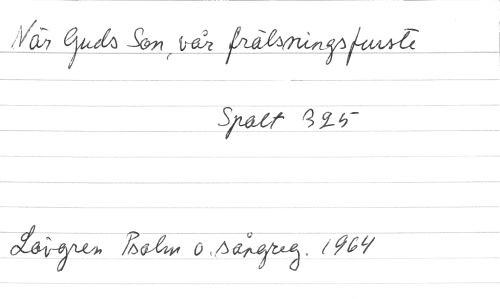 När Guds Son, vår frälsningsfurste
Spalt 325
Lövgren Psalm o. sångreg. 1964